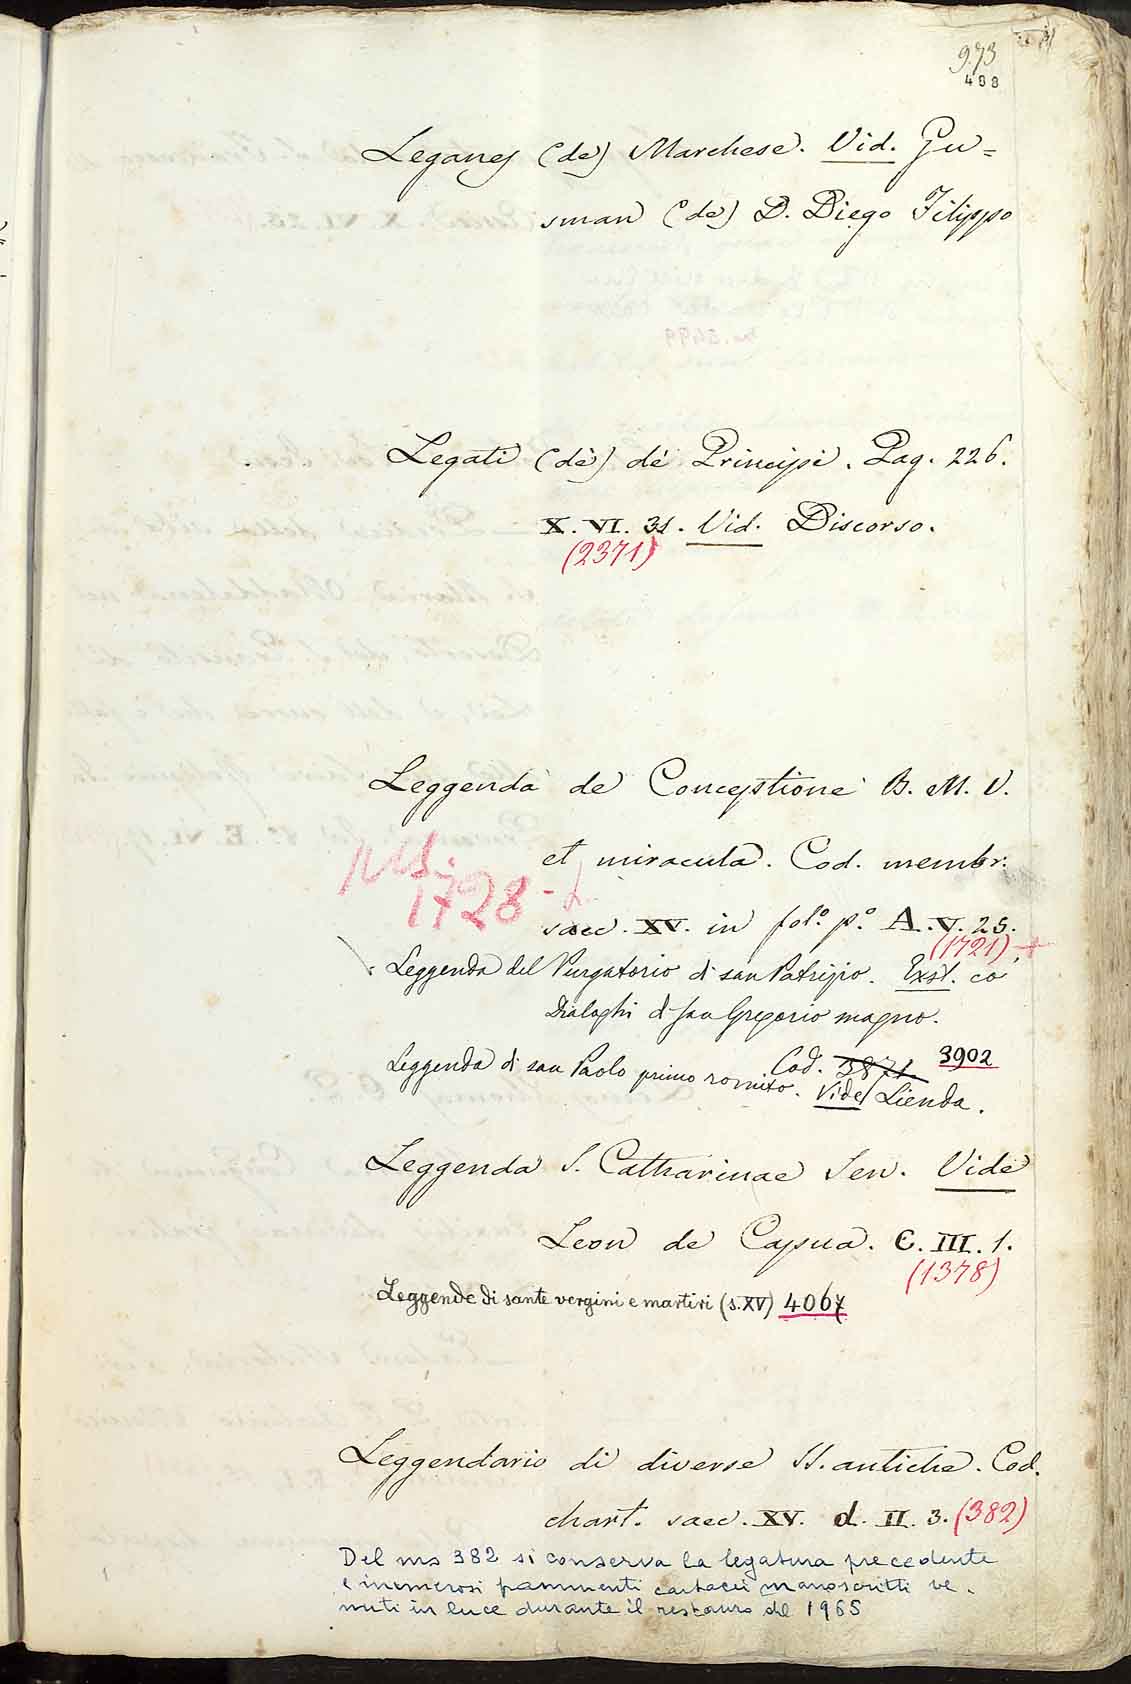 973
488
Leganes (de) Marchese. Vid. Gu=
sman (de) D. Diego Filippo
Legati (dè) dè Principi. Pag. 226.
X. VI. 31. Vid. Discorso.
(2371)
Leggenda de Conceptione B. M. V.
et miracula. Cod. membr.
Ms. 1728
saec. XV. in fol.º p.º A. V. 25.
(1721) +
Leggenda del Purgatorio di san Patrizio. Exst. co'
Dialoghi di san Gregorio magno.
Cod. 3871 3902
Leggenda di san Paolo primo romito. Vide Lienda.
Leggenda S. Catharinae Sen. Vide
Leon de Capua. C. III. 1.
(1378)
Leggende di sante vergini e martiri (s. XV) 4067
Leggendario di diverse SS. antiche. Cod.
chart. saec. XV. d. II. 3. (382)
Del ms 382 si conserva la legatura precedente
e numerosi frammenti cartacei manoscritti ve-
nuti in luce durante il restauro del 1965